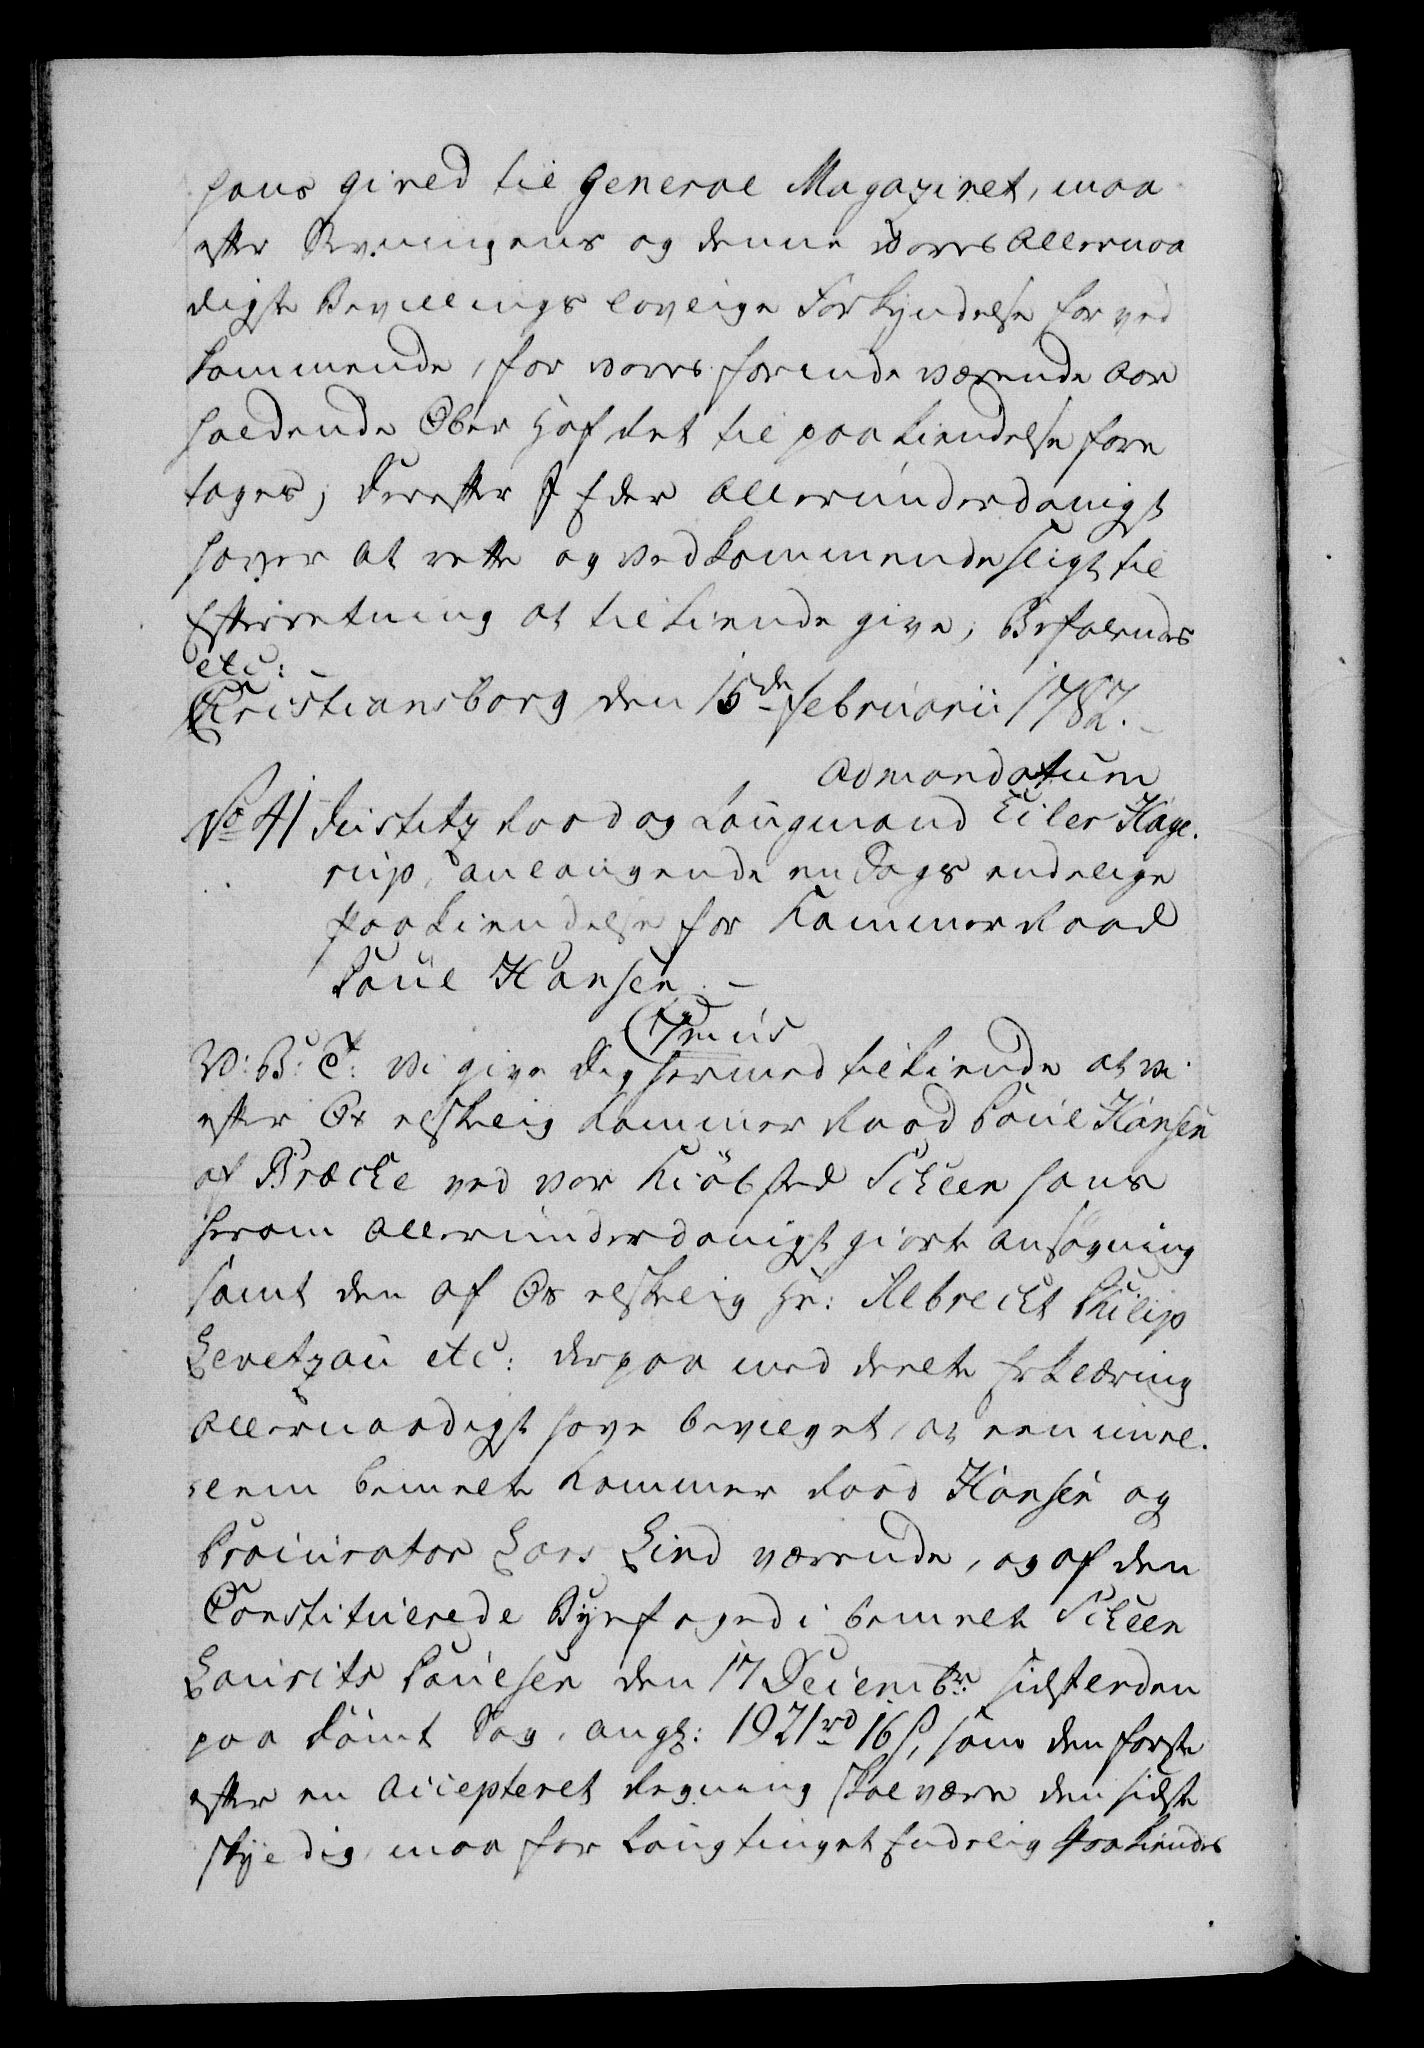 hans gield til General Magazinet, maa
efter Stevningens og denne Vores Allernaa
digste Bevillings lovlige Forkyndelse for ved
kommende, for vores forinde værende Aar
holdende Ober Hof Ret til paakiendelse fore
tages; Derefter I Eder Allerunderdanigst
haver at rette og Vedkommende sligt til
Efterretning at tilkiende give; Befalendes
etc:
Christiansborg den 15de Februarii 1782.
ad mandatum
No 41 Justitz Raad og Laugmand Eiler Hage-
rup, anlangende en Sags endelige
paakiendelse for Kammer Raad
Poul Hansen. -
(7mus
V: B: T: Vi give Dig hermed tilkiende at vi
efter Os elskelig Kammer Raad Poul Hansen
af Bræcke ved vor Kiöbsted Scheen hans
herom Allerunderdanigst giorte Ansögning
samt den af Os elskelig Hr: Albrecht Philip
Levetzau etc: derpaa med deelte Erklæring
Allernaadigst have bevilget, at een imel-
lem bemelte Kammer Raad Hansen og
Procurator Lars Lind værende, og af den
Constituerede Byefoged i bemelte Scheen
Laurits Poulsen den 17 Decembr: sidst enden
paa dömt Sag, angl: 1921 rd 16 s, som den förste
efter en Accepteret Regning skal være den sidste
skyldig, maa for Laugtinget Endelig Paakiendes